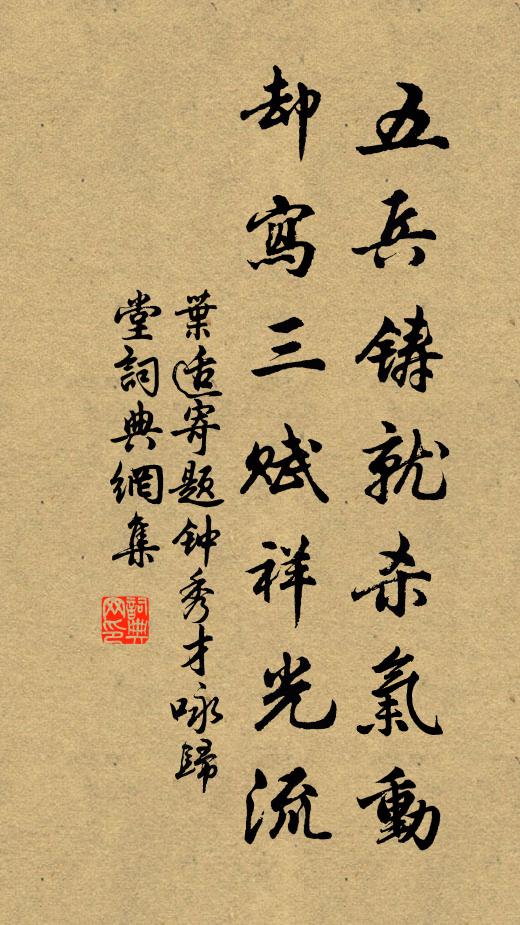 五兵铸就杀氣動
却寫三赋祥光流
葉适寄题钟秀才咏歸
堂詞典網集
詞典网印